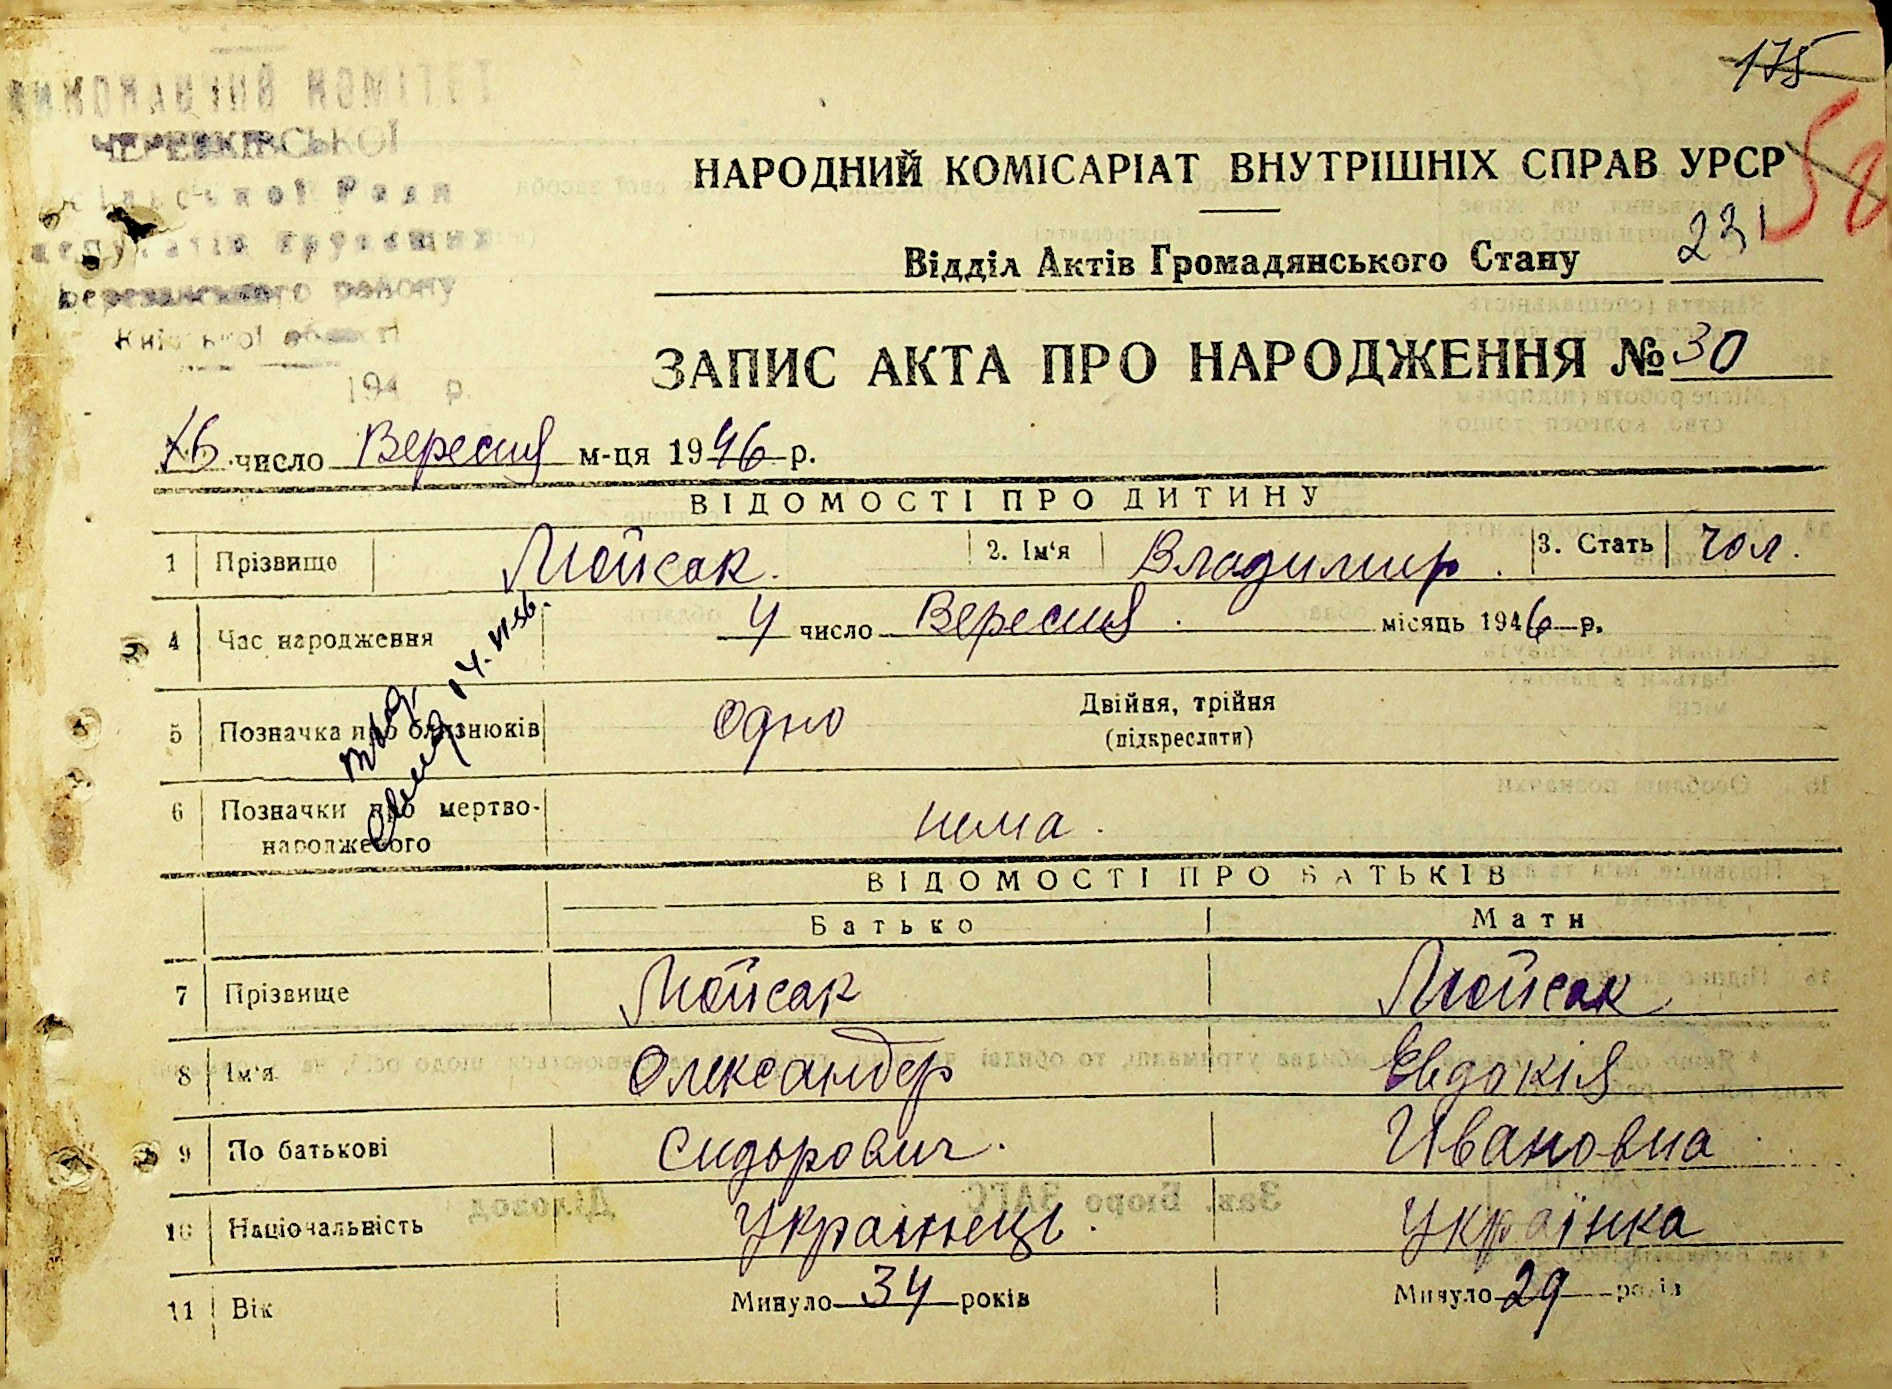 175
50
ВИКОНАВЧИЙ КОМІТЕТ
ЧЕРЕВКІВСЬКОЇ
сільської Ради
депутатів трудящих
Березанського району
Київської області
194 р.
НАРОДНИЙ КОМІСАРІАТ ВНУТРІШНІХ СПРАВ УРСР
Відділ Актів Громадянського Стану 231
ЗАПИС АКТА ПРО НАРОДЖЕННЯ № 30
16 число Вересня м-ця 1946 р.
ВІДОМОСТІ ПРО ДИТИНУ
1 Прізвище Мойсак. 2. Ім'я Владимир. 3. Стать чол.
4 Час народження 4 число Вересня. місяць 1946 р.
5 Позначка про близнюків Одно Двійня, трійня
(підкреслити)
6 Позначки про мертво-
народженого нема.
ВІДОМОСТІ ПРО БАТЬКІВ
Батько Мати
7 Прізвище Мойсак Мойсак
8 Ім'я Олександер Євдокія
9 По батькові Сидорович. Ивановна
10 Національність Українець. Українка
11 Вік Минуло 34 років Минуло 29 років